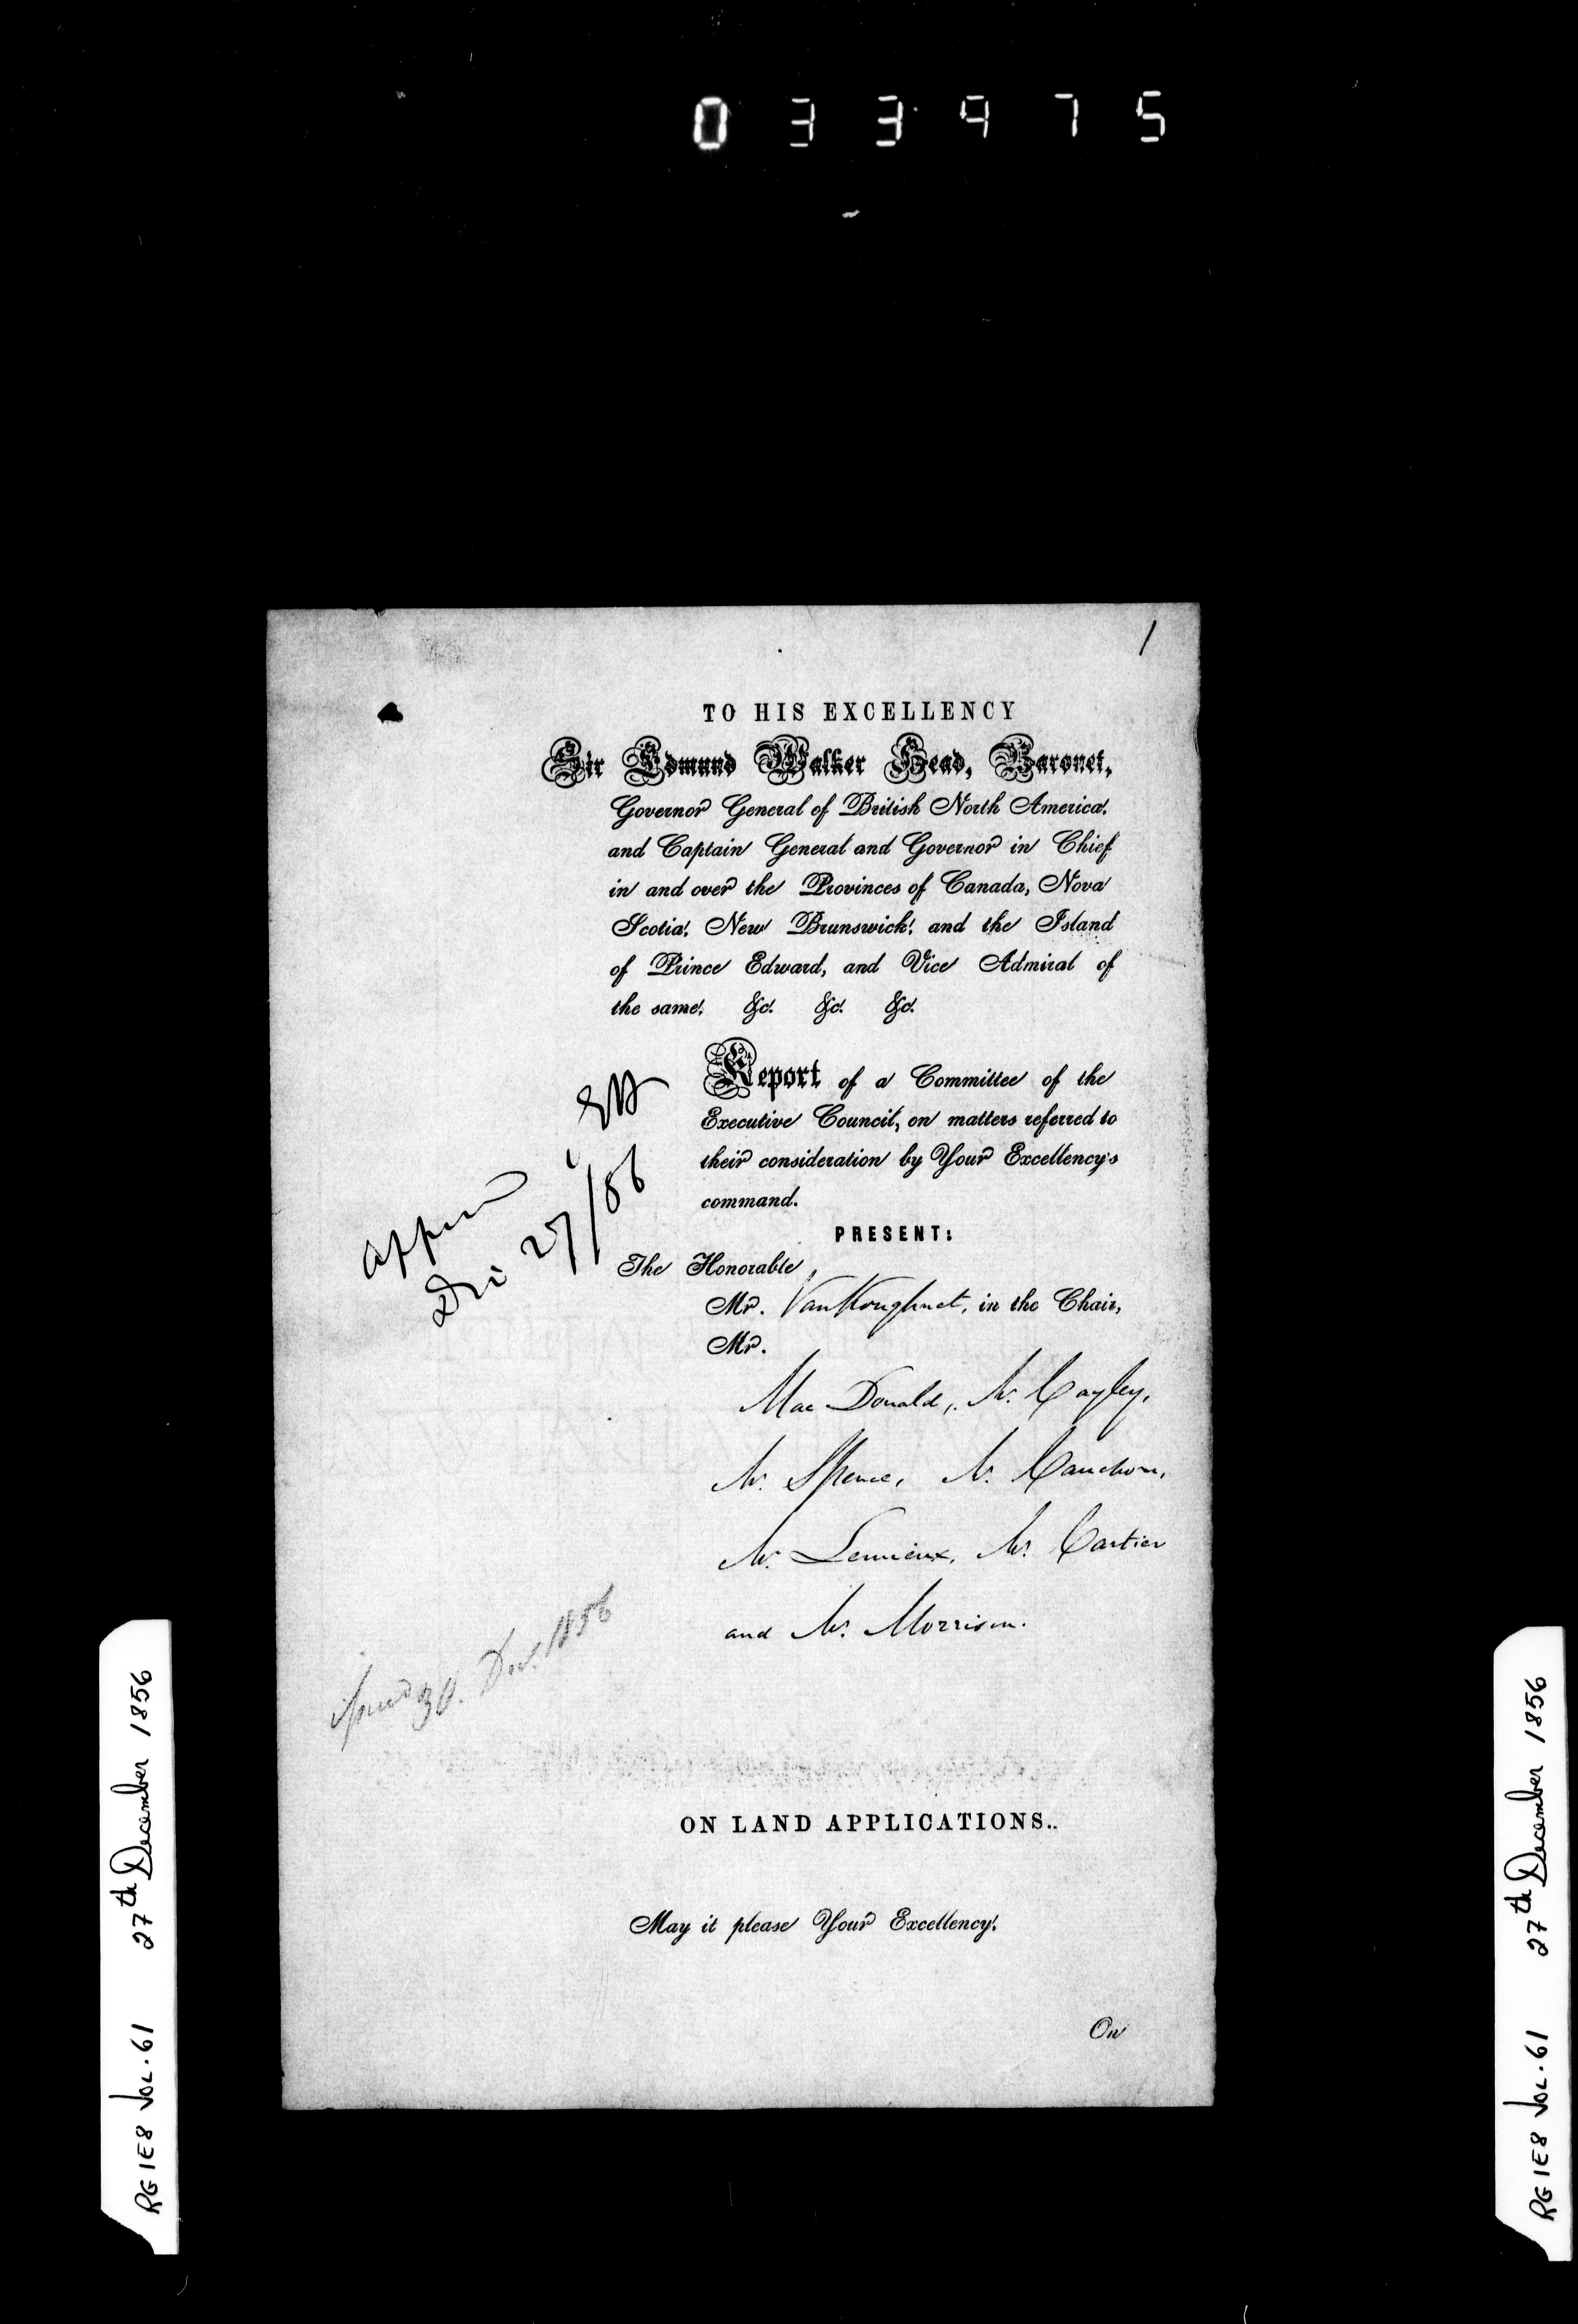 0 3 3 9 7 5
1
TO HIS EXCELLENCY
Sir Edmund Walker Head, Baronet,
Governor General of British North America,
and Captain General and Governor in Chief
in and over the Provinces of Canada, Nova
Scotia, New Brunswick, and the Island
of Prince Edward, and Vice Admiral of
the same, &c. &c. &c.
Report of a Committee of the
Executive Council, on matters referred to
their consideration by Your Excellency's
command.
PRESENT:
The Honorable
Mr. VanKoughnet, in the Chair,
Mr.
Mac Donald, Mr. Cayley,
Mr. Spence, Mr. Cauchon,
Mr. Lemieux, Mr. Cartier
and Mr. Morrison.
27/56
30. Dec. 1856
ON LAND APPLICATIONS..
May it please Your Excellency,
On
RG 1E8 VOL. 61 27th December 1856
RG 1E8 VOL. 61 27th December 1856